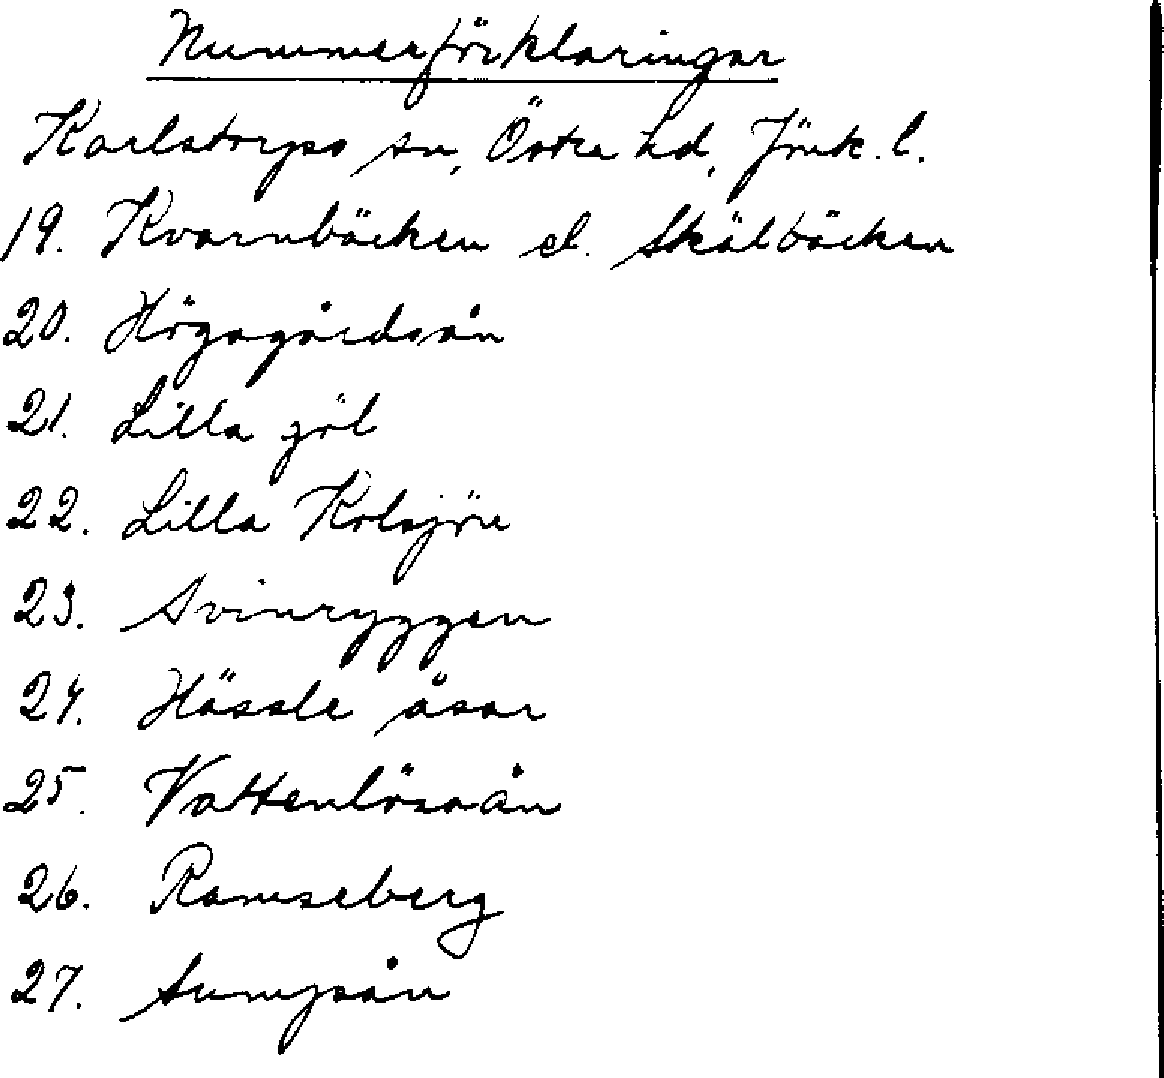 Nummerförklaringar
Karlstorps sn, Östra hd, Jönk. l.
19. Kvarnbäcken el. Skälbäcken
20. Högagårdsån
21. Lilla göl
22. Lilla Kolsjön
23. Svinryggen
24. Hässle åsar
25. Vattenlösaån
26. Ramseberg
27. Sumpån